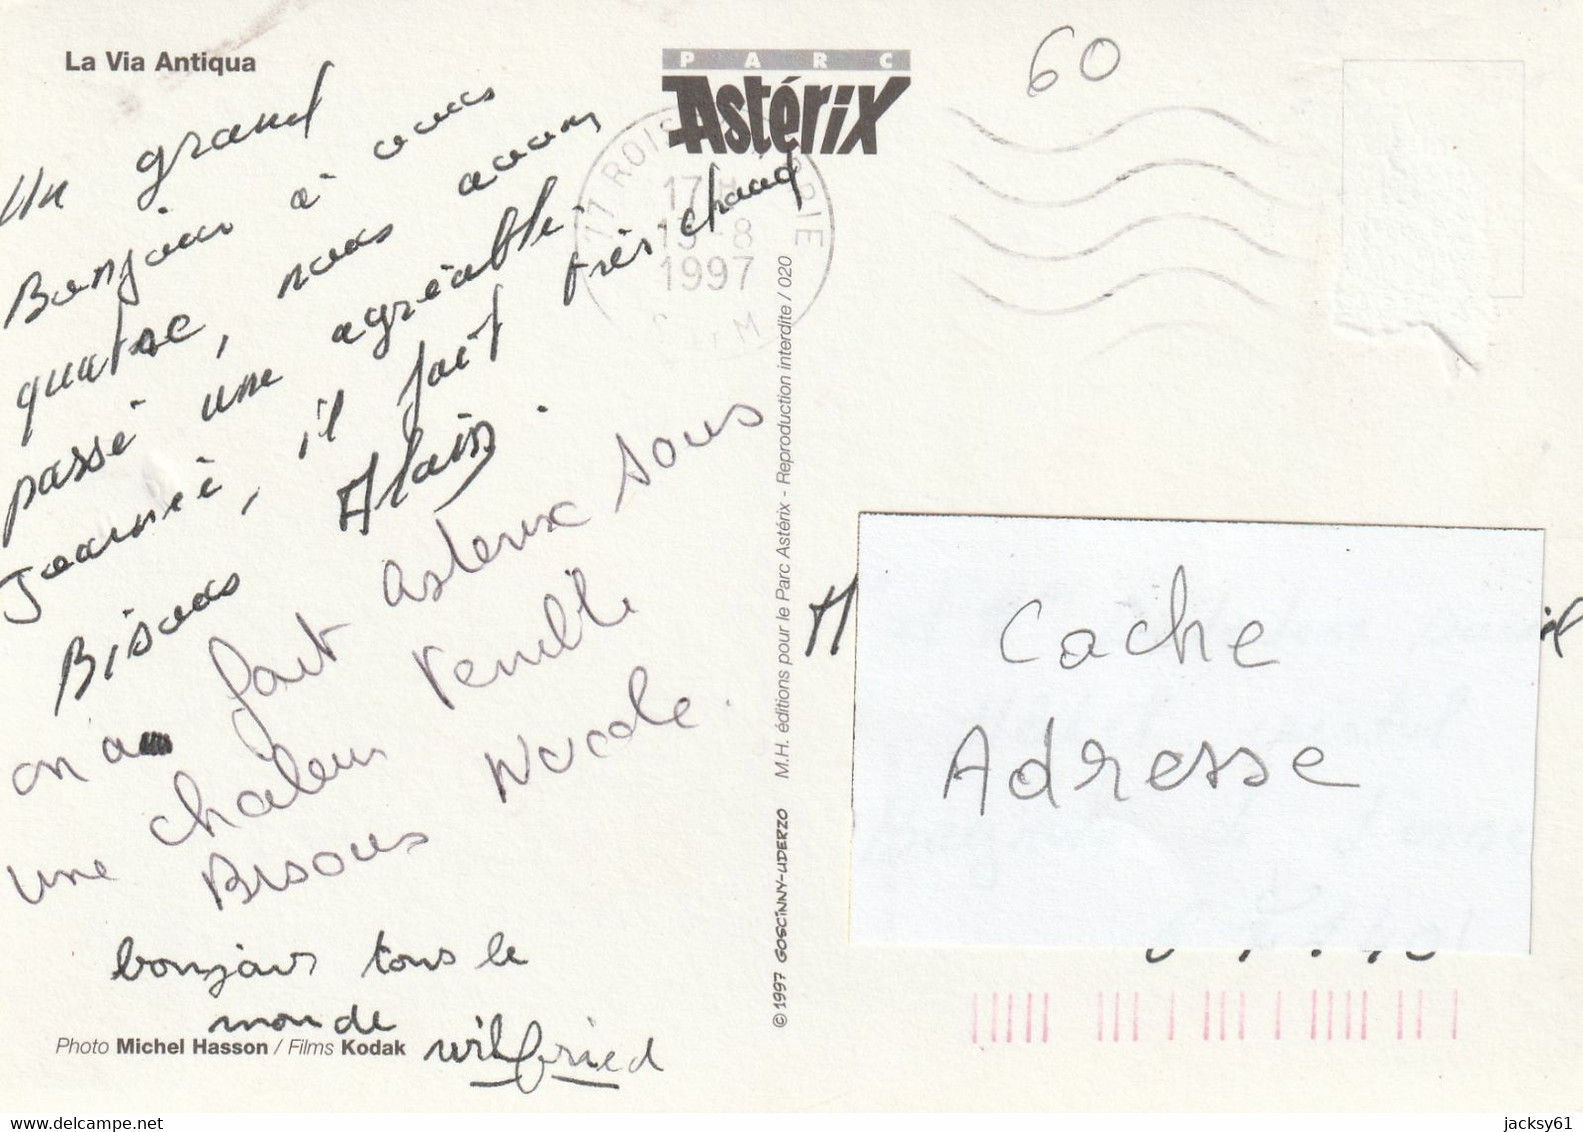 La Via Antiqua
PARC
Astérix
60
Un grand
Bonjour à vous
quatre, nous avons
passé une agréable
Journée, il fait très chaud
Bisous Alain.
on a fait asterix sous
une chaleur terrible
Bisous Nicole.
bonjour tous le
monde
wilfried
Photo Michel Hasson / Films Kodak
77 ROISSY BRIE
17H
1997
© 1997 GOSCINNY-UDERZO M.H. éditions pour le Parc Astérix - Reproduction interdite / 020
Cache
Adresse
jacksy61